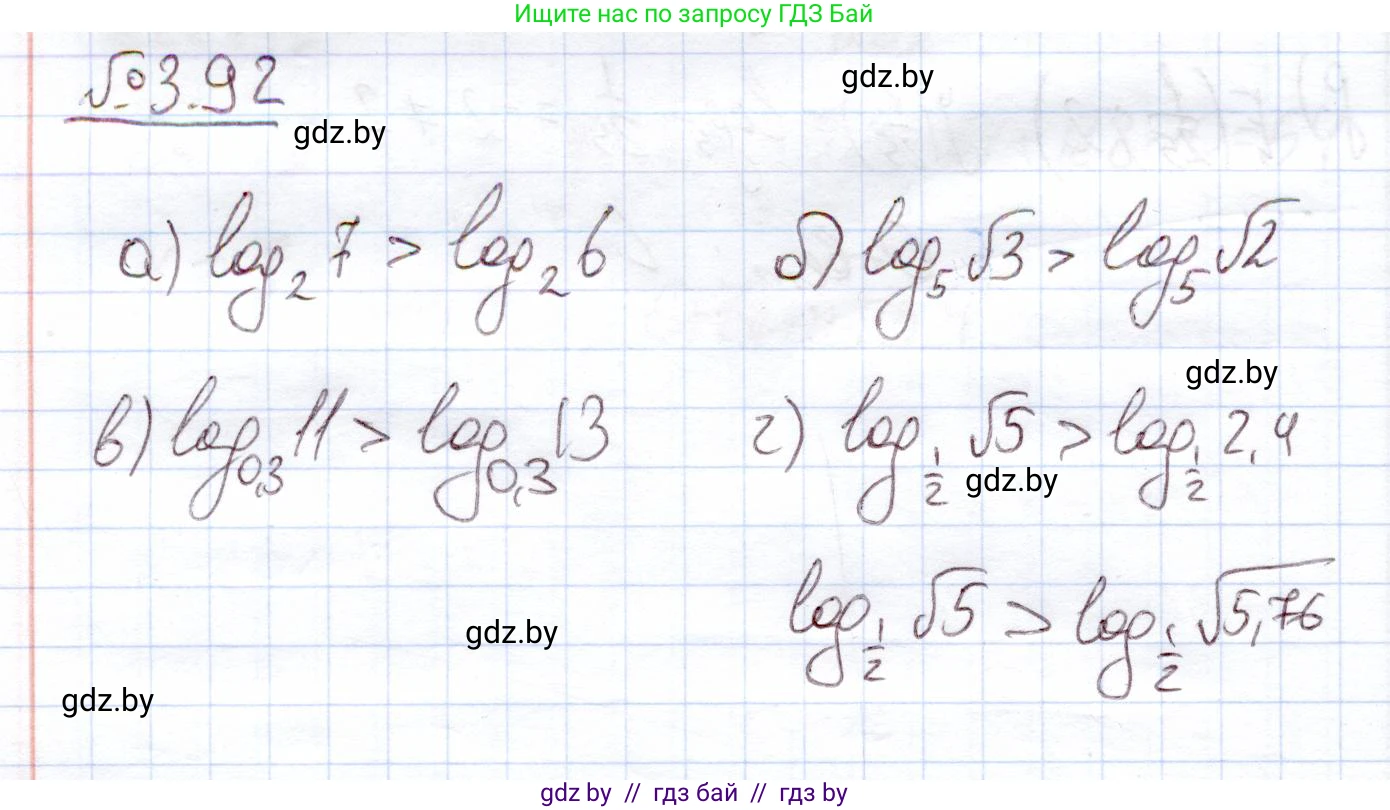 Ищите нас по запросу ГДЗ Бай
№3.92
gdz.by
gdz.by
а) log₂ 7 > log₂ 6
б) log₅ √3 > log₅ √2
gdz.by
в) log₀,₃ 11 > log₀,₃ 13
г) log_{1/2} √5 > log_{1/2} 2,4
gdz.by
log_{1/2} √5 > log_{1/2} √5,76
gdz.by
gdz.by
gdz by // гдз бай // гдз by